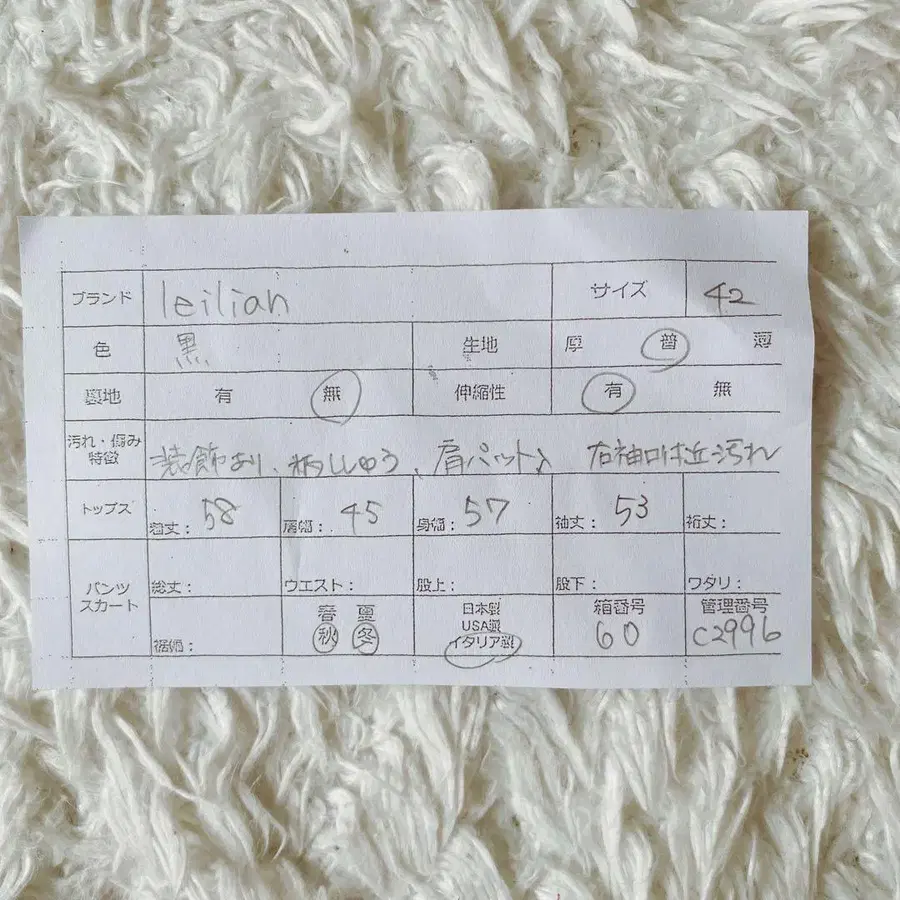 ブランド leilian サイズ 42
色 黒 生地 厚 普 薄
裏地 有 無 伸縮性 有 無
汚れ・傷み
特徴 装飾あり、柄ししゅう、肩パット 右袖口付近汚れ
トップス 着丈: 58 肩幅: 45 身幅: 57 袖丈: 53 裄丈:
パンツ
スカート 総丈: ウエスト: 股上: 股下: ワタリ:
裾幅: 春 夏
秋 冬
日本製
USA製
イタリア製
箱番号
60
管理番号
C2996